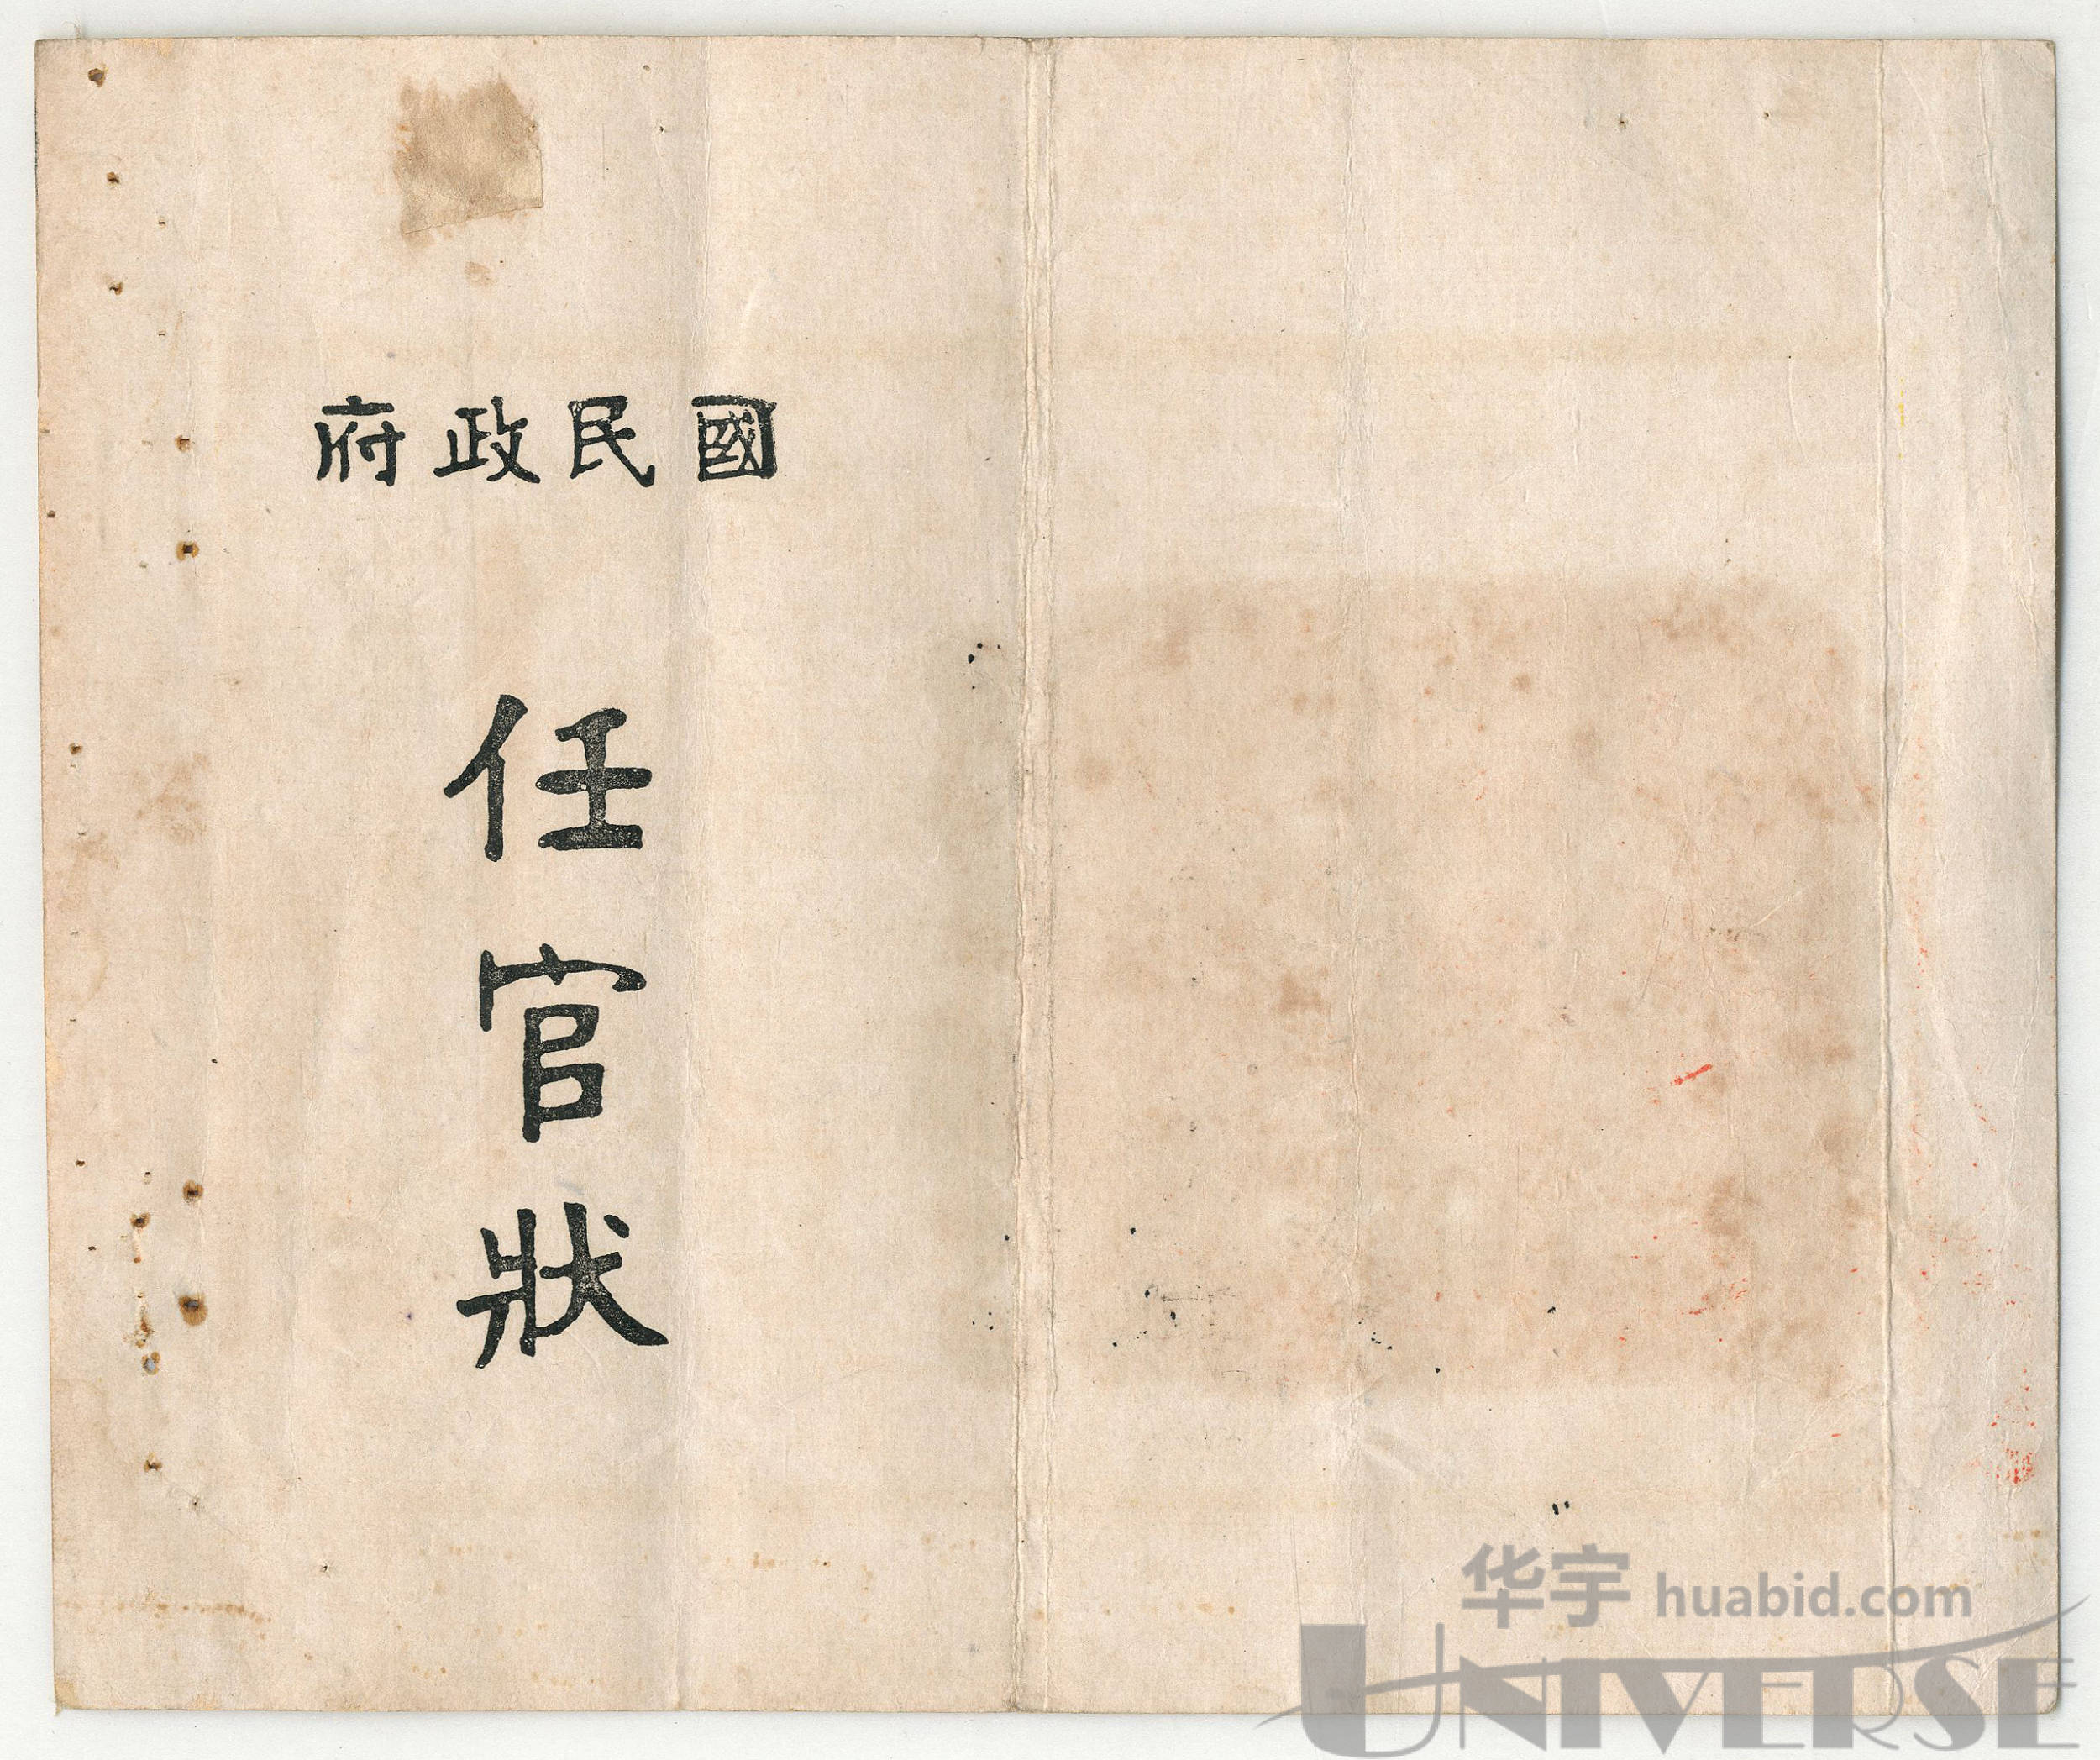 國民政府
任官狀
华宇 huabid.com
UNIVERSE